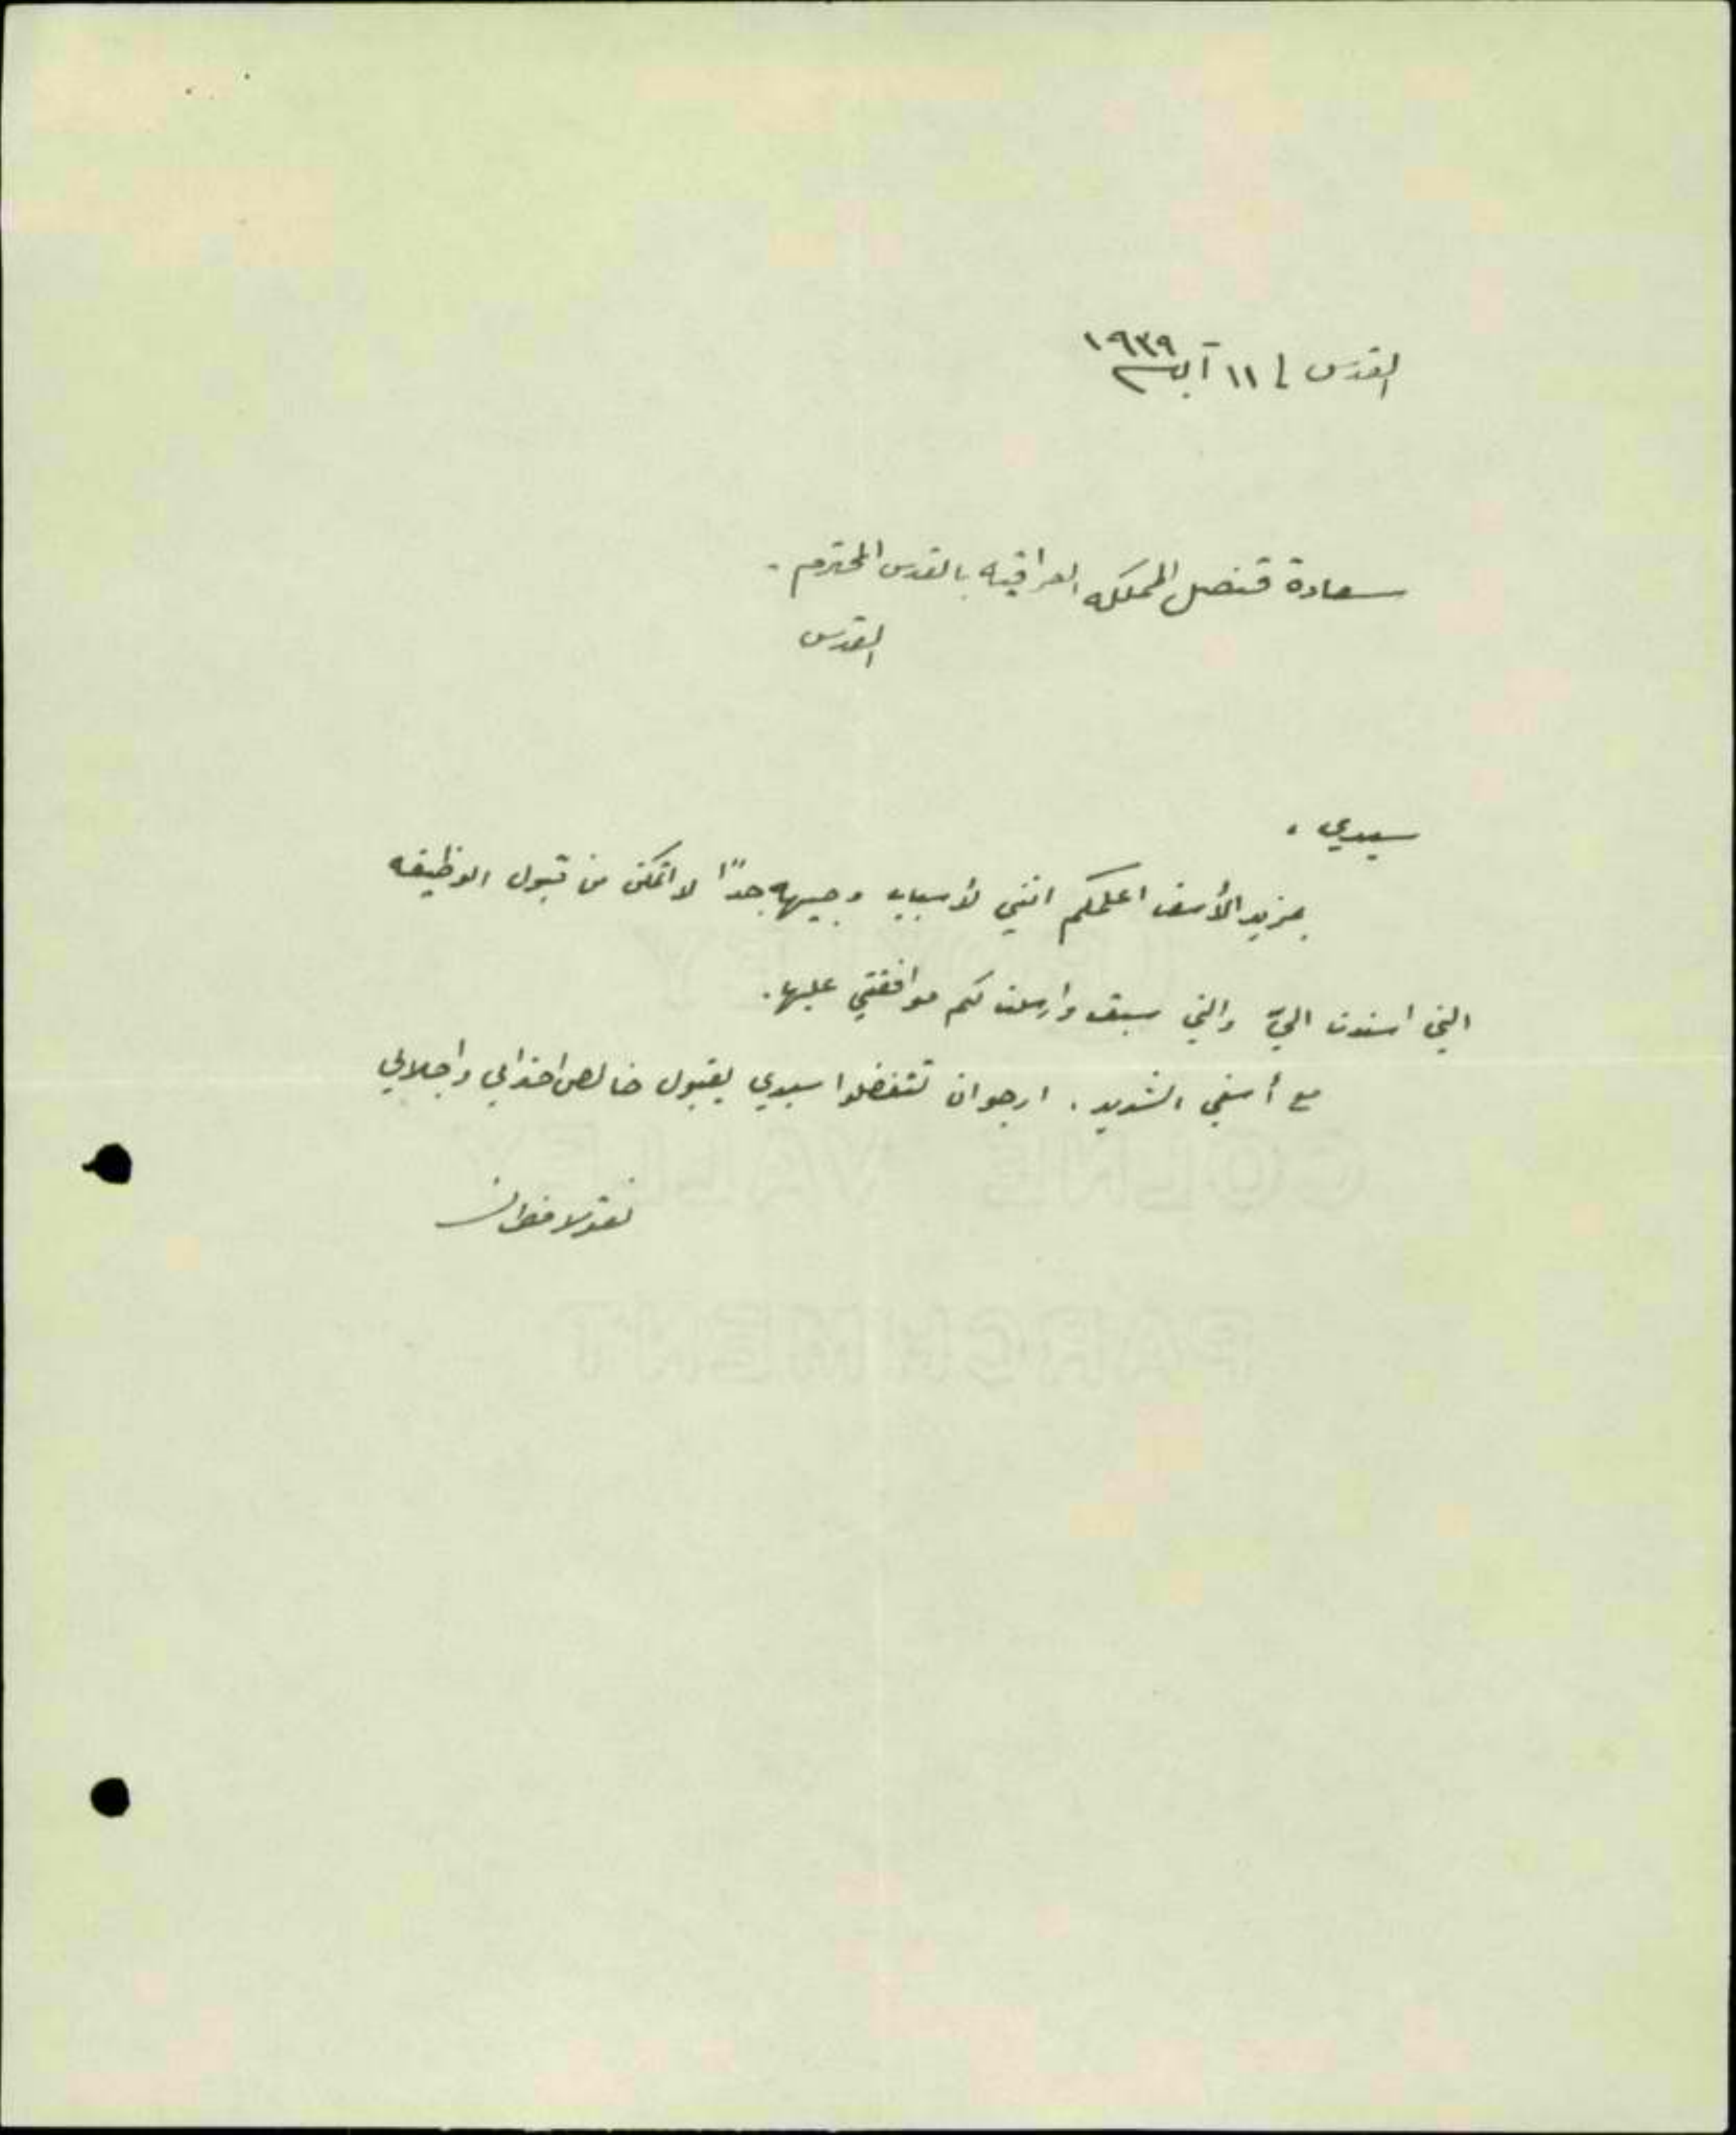 القدس في ١١ آب سنة ١٩٣٩
سعادة قنصل المملكه العراقيه بالقدس المحترم .
القدس
سيدي ،
بمزيد الأسف اعلمكم انني لأسباب وجيهه جداً لا اتمكن من قبول الوظيفه
التي اسندت اليّ والتي سبق وارسلت لكم موافقتي عليها .
مع أسفي الشديد . ارجو ان تتفضلوا سيدي بقبول خالص احترامي واجلالي
نقولا
COLNE VALLEY
PARCHMENT